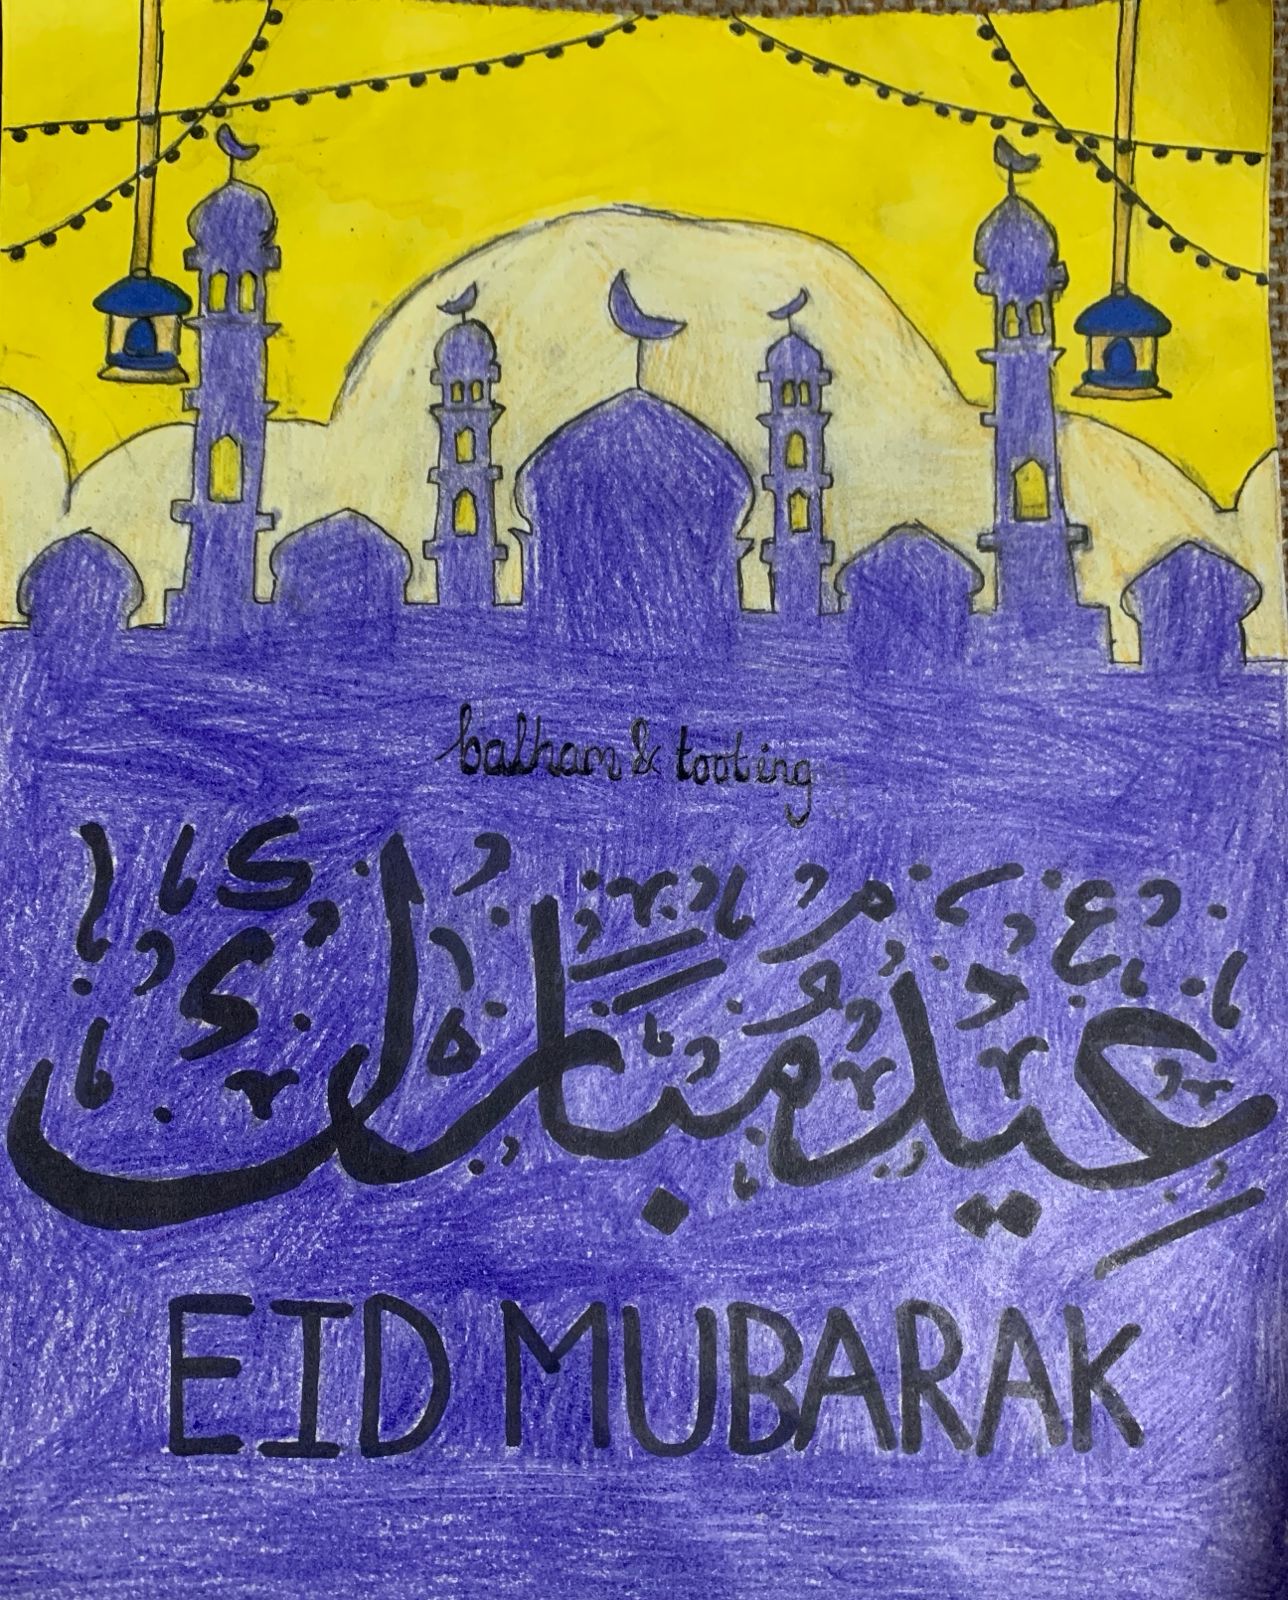 balham & tooting
عيد مبارك
EID MUBARAK